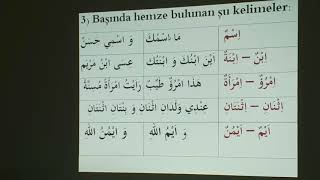 3) Başında hemze bulunan şu kelimeler:
اِسْمٌ مَا اسْمُكَ وَ اسْمِي حَسَنٌ
اِبْنٌ – اِبْنَةٌ اَيْنَ ابْنُكَ وَ ابْنَتُكَ عِسَى ابْنُ مَرْيَمَ
اِمْرُؤٌ – اِمْرَأَةٌ هَذَا امْرُؤٌ طَيِّبٌ رَاَيْتُ امْرَأَةً مُسِنَّةً
اِثْنَانِ – اِثْنَتَانِ عِنْدِي وَلَدَانِ اثْنَانِ وَ بِنْتَانِ اثْنَتَانِ
اَيْمُ – اَيْمُنُ وَ ايْمُ اللهِ وَ ايْمُنُ اللهِ